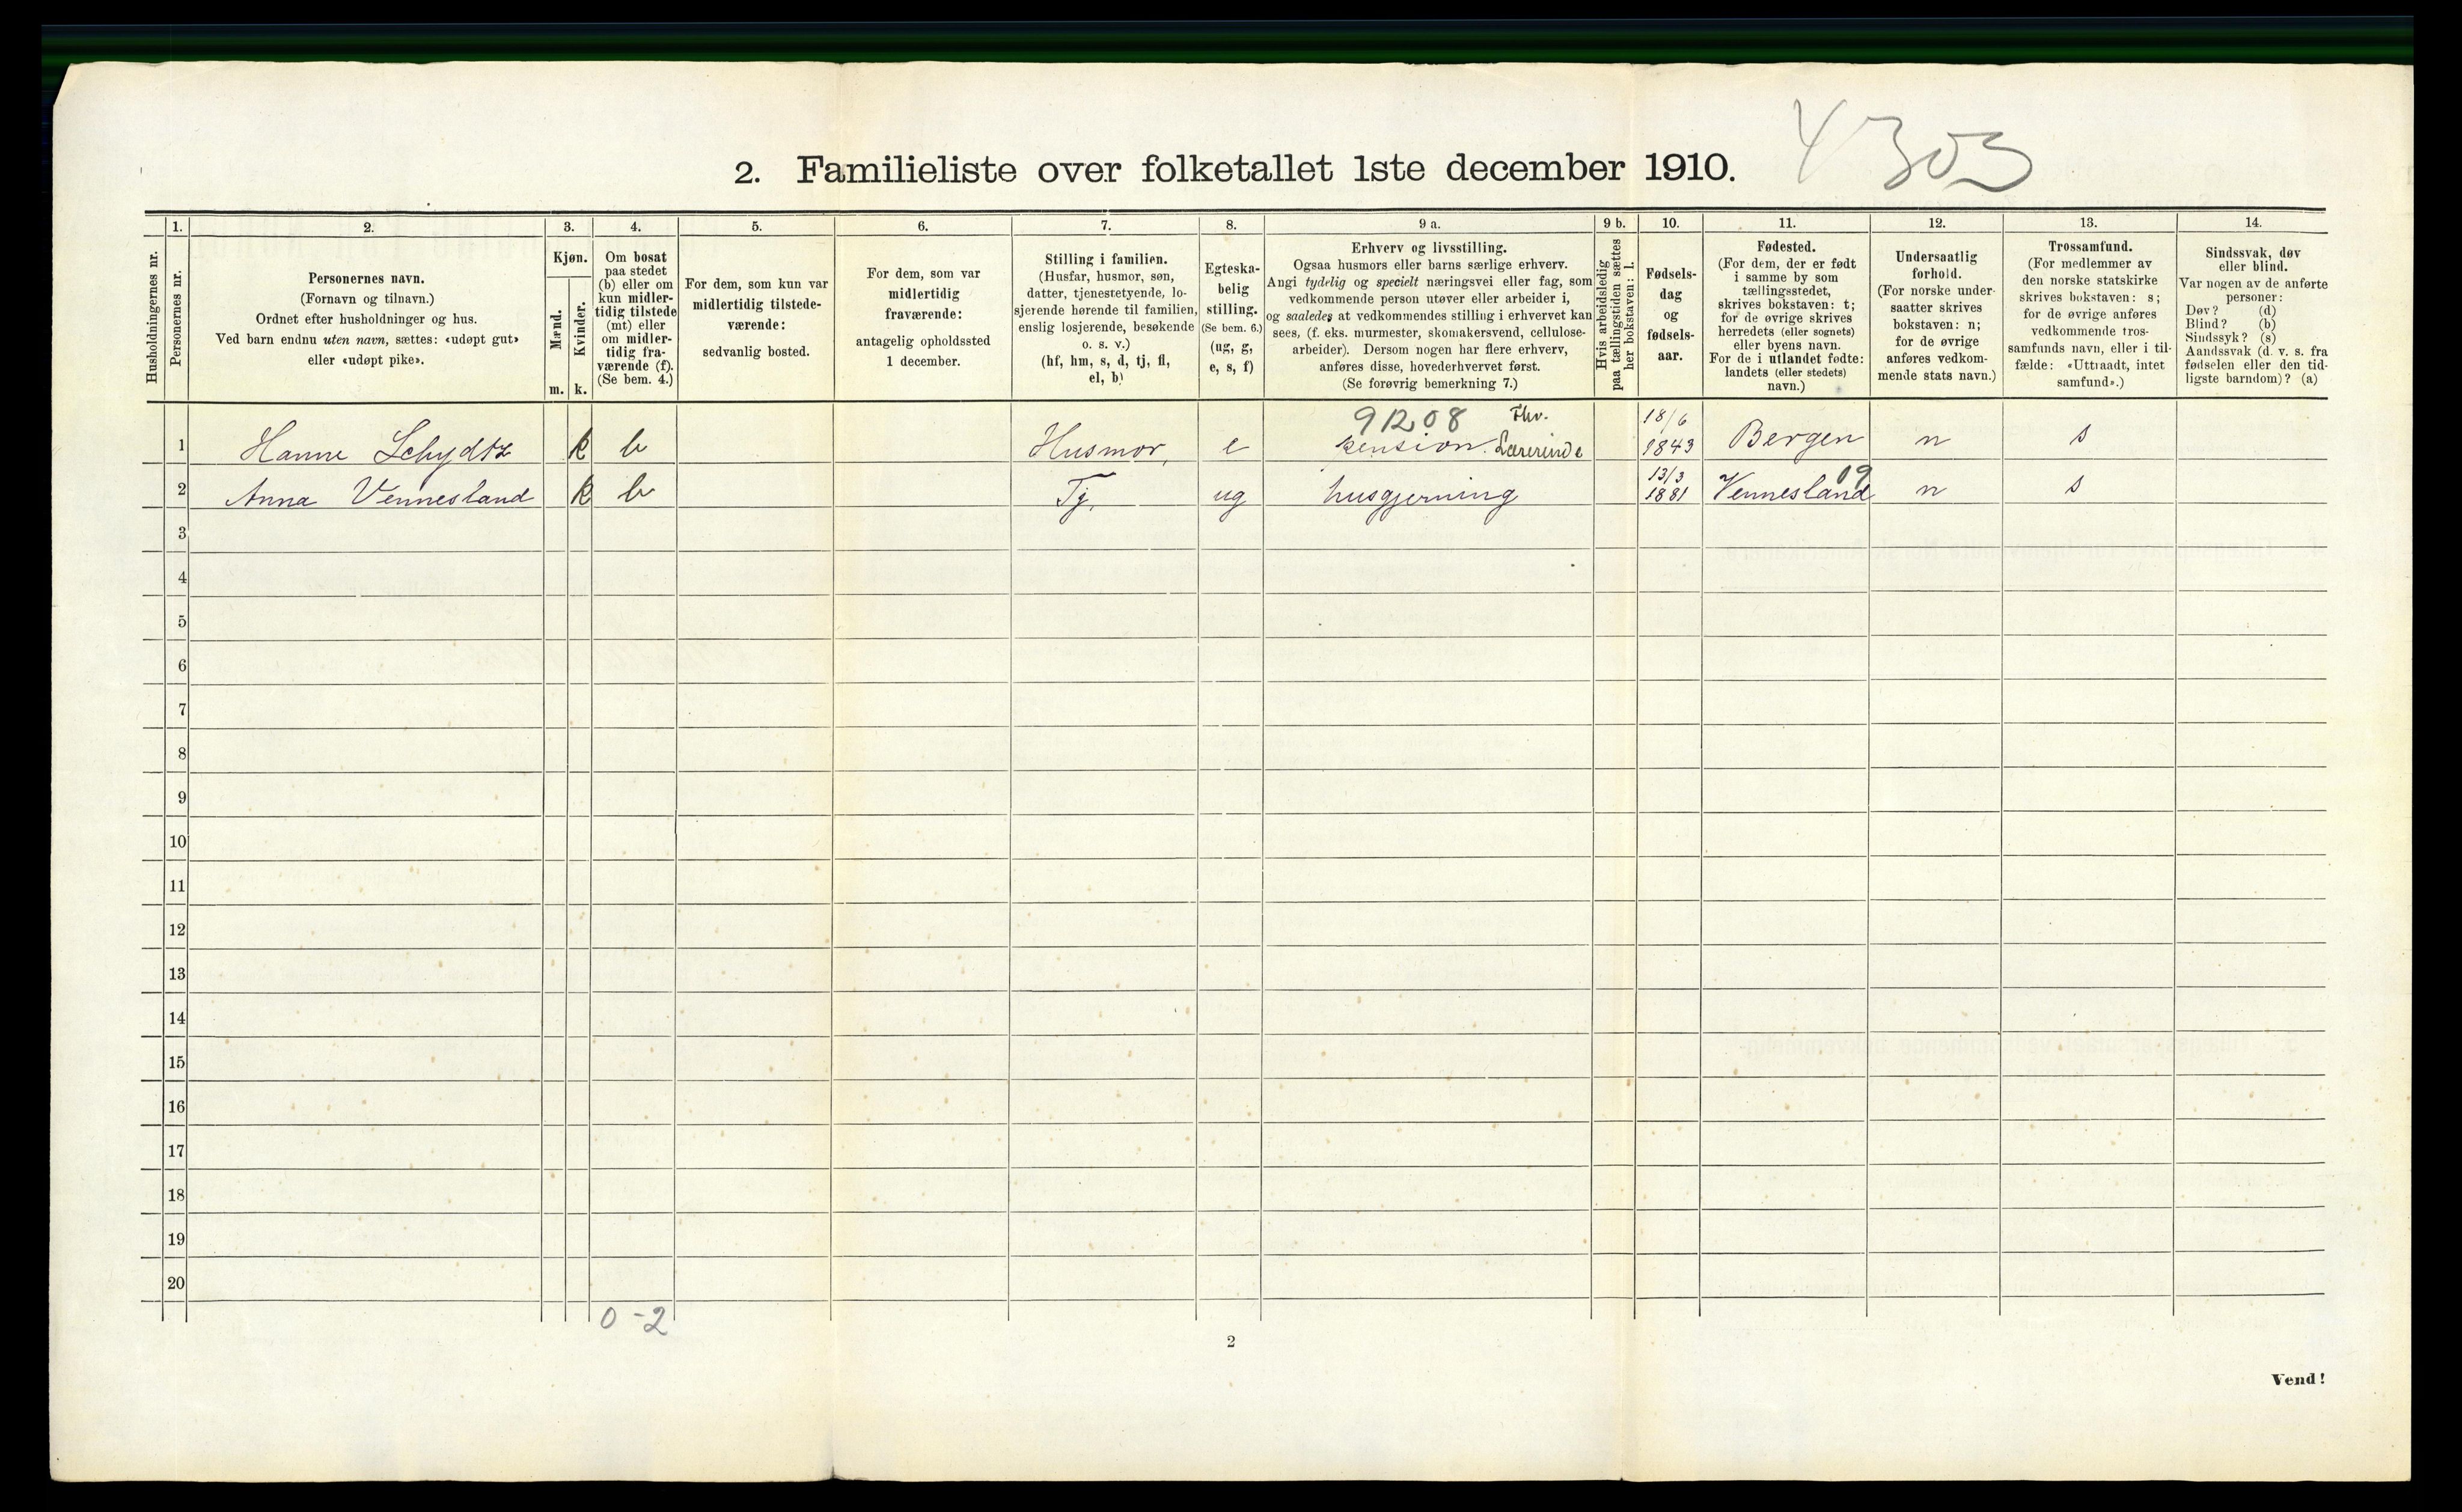 4303
2. Familieliste over folketallet 1ste december 1910.
1. 2. 3. 4. 5. 6. 7. 8. 9 a. 9 b. 10. 11. 12. 13. 14.
Husholdningernes nr.
Personernes nr.
Personernes navn.
(Fornavn og tilnavn.)
Ordnet efter husholdninger og hus.
Ved barn endnu uten navn, sættes: «udøpt gut»
eller «udøpt pike».
Kjøn.
Mænd.
Kvinder.
m. k.
Om bosat
paa stedet
(b) eller om
kun midler-
tidig tilstede
(mt) eller
om midler-
tidig fra-
værende (f).
(Se bem. 4.)
For dem, som kun var
midlertidig tilstede-
værende:
sedvanlig bosted.
For dem, som var
midlertidig
fraværende:
antagelig opholdssted
1 december.
Stilling i familien.
(Husfar, husmor, søn,
datter, tjenestetyende, lo-
sjerende hørende til familien,
enslig losjerende, besøkende
o. s. v.)
(hf, hm, s, d, tj, fl,
el, b)
Egteska-
belig
stilling.
(Se bem. 6.)
(ug, g,
e, s, f)
Erhverv og livsstilling.
Ogsaa husmors eller barns særlige erhverv.
Angi tydelig og specielt næringsvei eller fag, som
vedkommende person utøver eller arbeider i,
og saaledes at vedkommendes stilling i erhvervet kan
sees, (f. eks. murmester, skomakersvend, cellulose-
arbeider). Dersom nogen har flere erhverv,
anføres disse, hovederhvervet først.
(Se forøvrig bemerkning 7.)
Hvis arbeidsledig
paa tællingstiden sættes
her bokstaven: l.
Fødsels-
dag
og
fødsels-
aar.
Fødested.
(For dem, der er født
i samme by som
tællingsstedet,
skrives bokstaven: t;
for de øvrige skrives
herredets (eller sognets)
eller byens navn.
For de i utlandet fødte:
landets (eller stedets)
navn.)
Undersaatlig
forhold.
(For norske under-
saatter skrives
bokstaven: n;
for de øvrige
anføres vedkom-
mende stats navn.)
Trossamfund.
(For medlemmer av
den norske statskirke
skrives bokstaven: s;
for de øvrige anføres
vedkommende tros-
samfunds navn, eller i til-
fælde: «Uttraadt, intet
samfund».)
Sindssvak, døv
eller blind.
Var nogen av de anførte
personer:
Døv? (d)
Blind? (b)
Sindssyk? (s)
Aandssvak (d. v. s. fra
fødselen eller den tid-
ligste barndom)? (a)
91208 Fhv. 18/6
1 Hanne Schydtz k b Husmor, e pension. Lærerinde 1843 Bergen n s
13/3 09
2 Anna Vennesland k b Tj. ug husgjerning 1881 Vennesland n s
3
4
5
6
7
8
9
10
11
12
13
14
15
16
17
18
19
20
0-2
2
Vend!